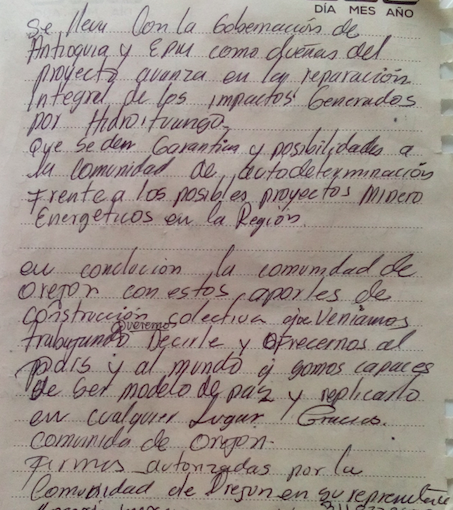 DÍA MES AÑO
se lleva Con la Gobernación de
Antioquia y EPM como dueñas del
proyecto avanza en la reparación
Integral de los impactos Generados
por Hidroituango.
Que se den Garantias y posibilidades a
la Comunidad de autodeterminación
Frente a los posibles proyectos Minero
Energeticos en la Región.
en conclución la comunidad de
Orejon con estos aportes de
construcción colectiva que Veniamos
trabajando queremos Decirle y Ofrecernos al
país y al mundo q somos capaces
de ser modelo de paz y replicarlo
en cualquier Lugar. Gracias.
comunida de Orejon.
Firmas autorizadas por la
Comunidad de Orejon en su